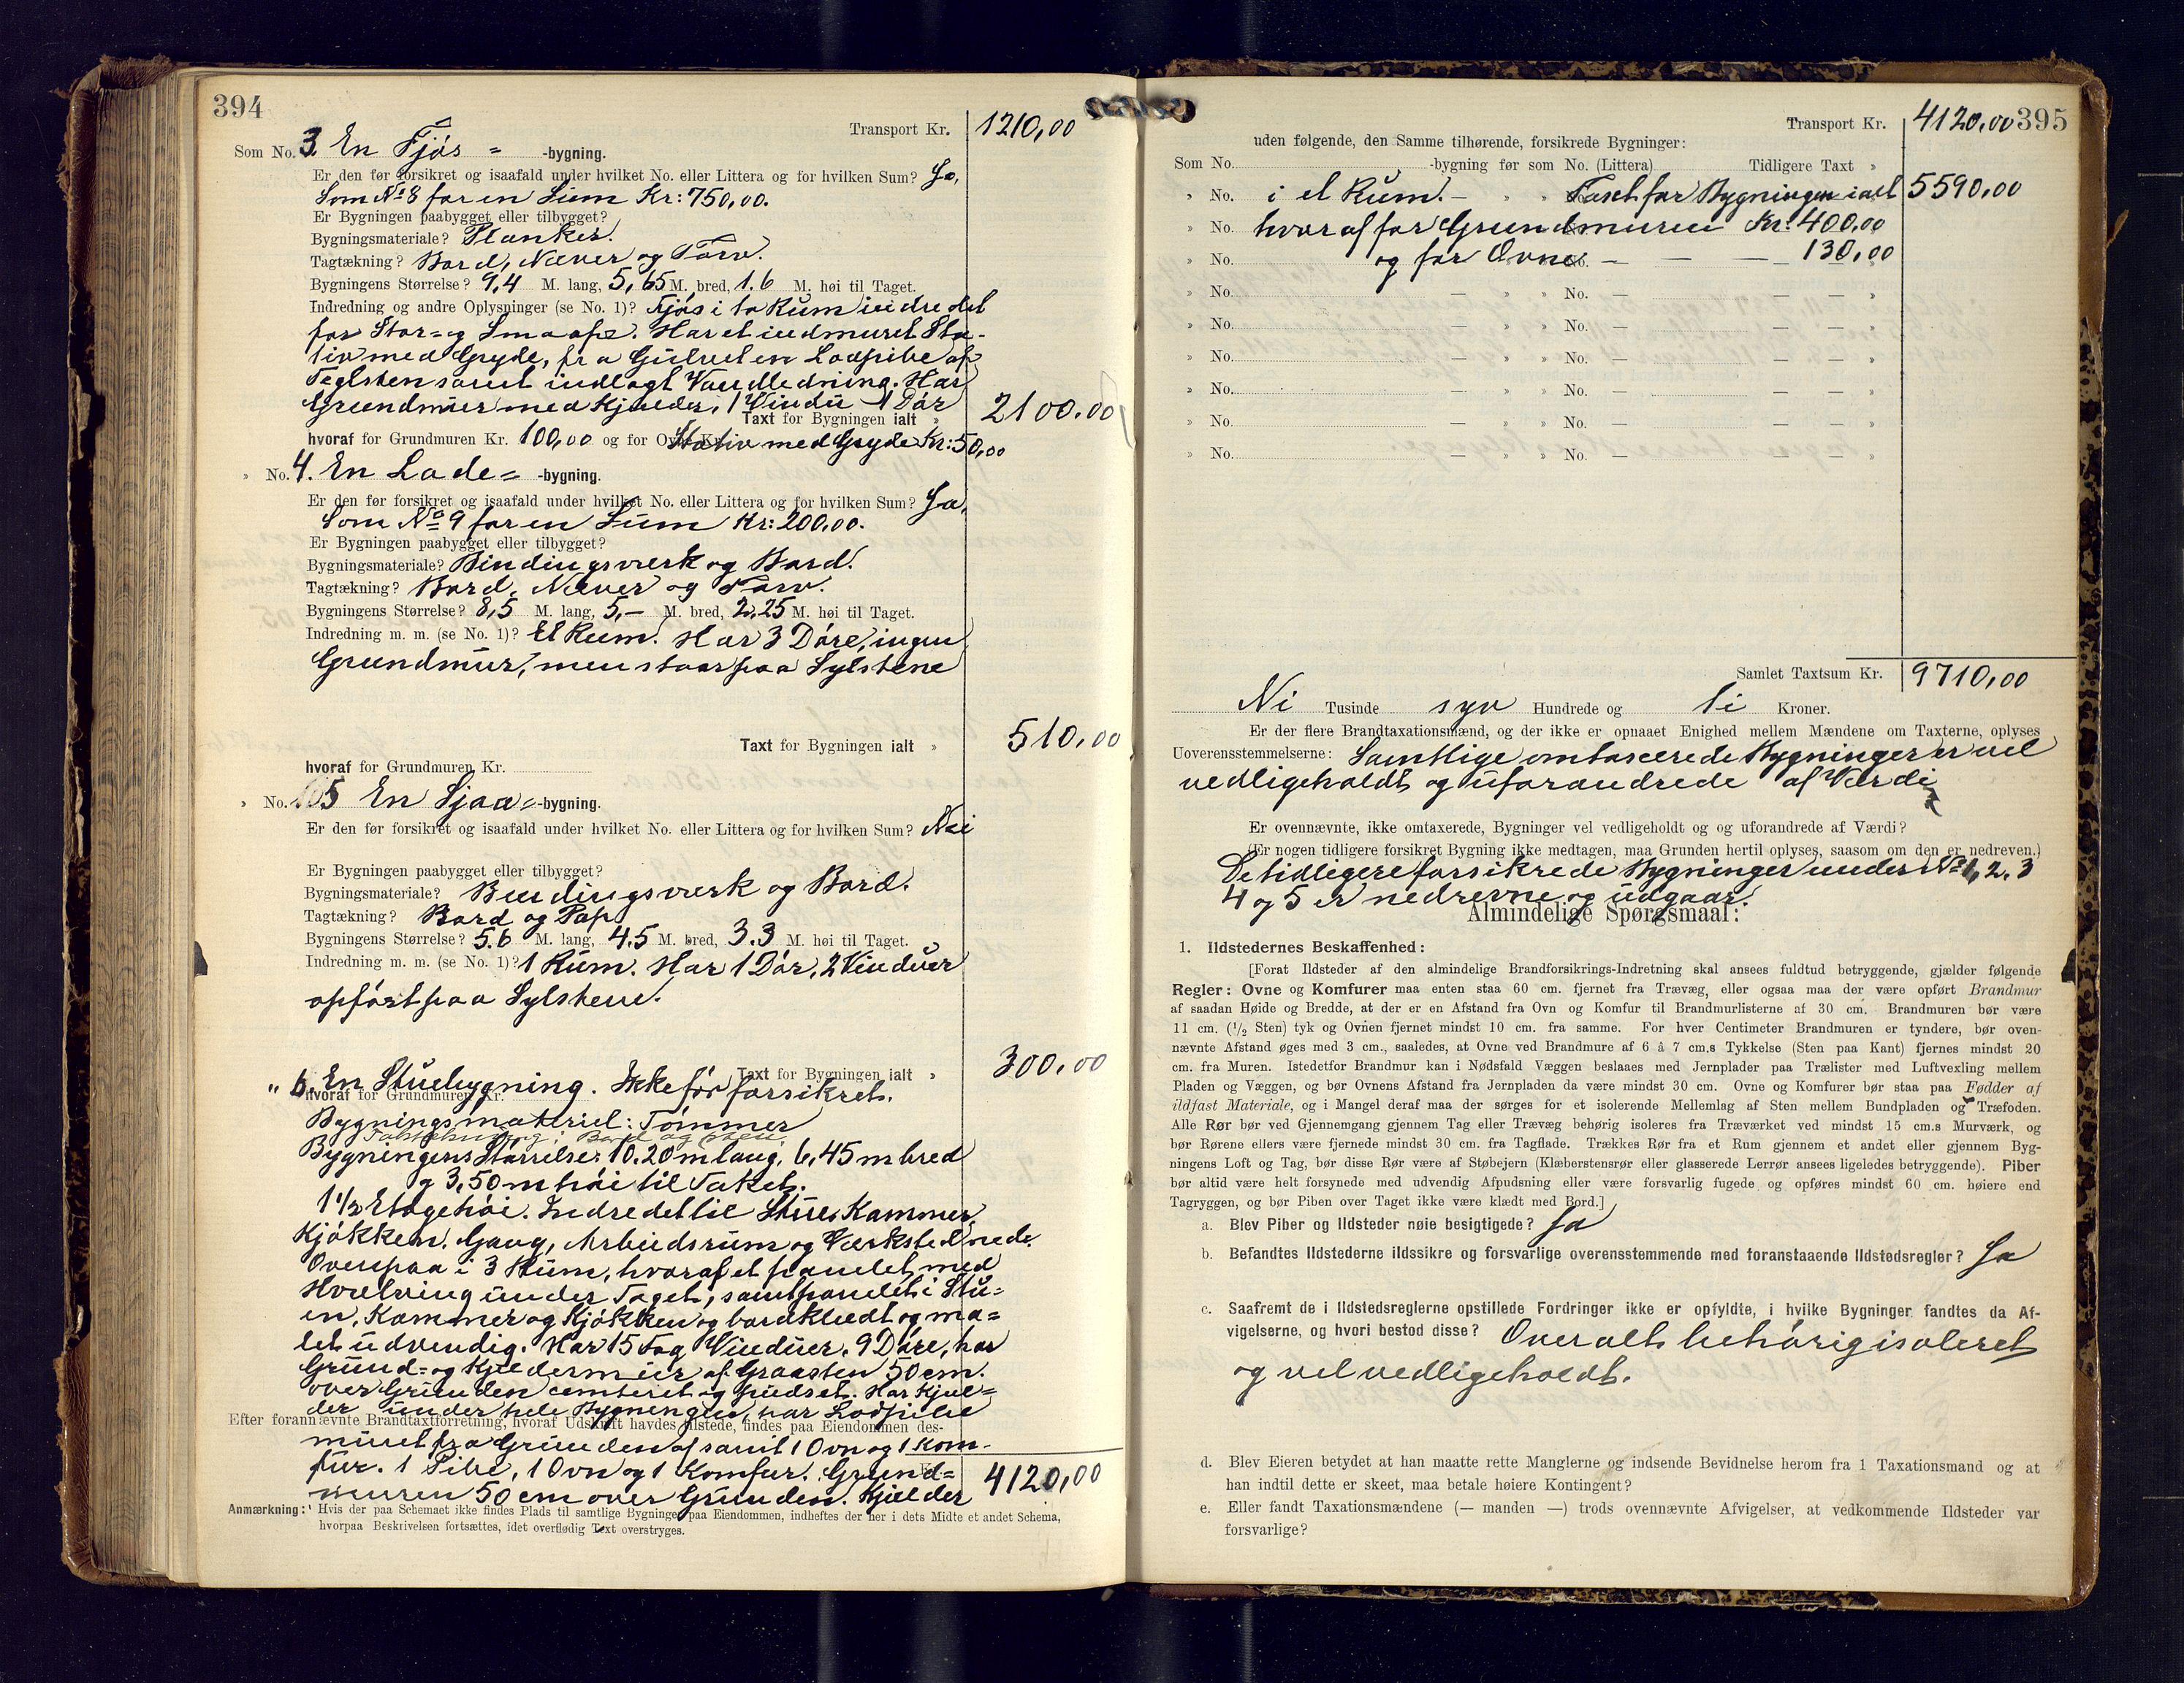 394
Transport Kr. 1210,00
Som No. 3. En Fjøs = -bygning.
Er den før forsikret og isaafald under hvilket No. eller Littera og for hvilken Sum? Ja,
Som No 8 for en Sum Kr: 750,00.
Er Bygningen paabygget eller tilbygget?
Bygningsmateriale? Planker.
Tagtækning? Bord, Næver og Torv.
Bygningens Størrelse? 9,4 M. lang, 5,65 M. bred, 1.6 M. høi til Taget.
Indredning og andre Oplysninger (se No. 1)? Fjøs i to Rum indredet
for Stor= og Smaafæ. Har et indmuret Sta-
tiv med Gryde, fra Gulvet en Lodpibe af
Teglsten samt indlagt Vandledning. Har
Grundmur med Kjælder, 1 Vindu 1 Dør
Taxt for Bygningen ialt » 2100.00
hvoraf for Grundmuren Kr. 100,00 og for Ovne Kr. Stativ med Gryde Kr: 50,00
» No. 4. En Lade= -bygning.
Er den før forsikret og isaafald under hvilket No. eller Littera og for hvilken Sum? Ja,
Som No 9 for en Sum Kr: 200,00.
Er Bygningen paabygget eller tilbygget?
Bygningsmateriale? Bindingsværk og Bord.
Tagtækning? Bord, Næver og Torv.
Bygningens Størrelse? 8,5 M. lang, 5,— M. bred, 2,25 M. høi til Taget.
Indredning m. m. (se No. 1)? Et Rum. Har 3 Døre, ingen
Grundmur, men staar paa Sylstene
Taxt for Bygningen ialt » 510,00
hvoraf for Grundmuren Kr.
» No. 5 En Sjaa= -bygning.
Er den før forsikret og isaafald under hvilket No. eller Littera og for hvilken Sum? Nei
Er Bygningen paabygget eller tilbygget?
Bygningsmateriale? Bindingsværk og Bord.
Tagtækning? Bord og Pap
Bygningens Størrelse? 5.6 M. lang, 4.5 M. bred, 3.3 M. høi til Taget.
Indredning m. m. (se No. 1)? 1 Rum. Har 1 Dør, 2 Vinduer
opført paa Sylstene.
Taxt for Bygningen ialt » 300,00
" 6. En Stuebygning. Ikke før forsikret.
hvoraf for Grundmuren Kr.
Bygningsmateriel: Tømmer
Taktekning: Bord og sten
Bygningens Størrelse: 10.20 m lang, 6,45 m bred
og 3,50 m høi til Taket.
1 1/2 Etage høi. Indredet til Stue, Kammer,
Kjøkken, Gang, Arbeidsrum og Værksted nede.
Ovenpaa i 3 Rum, hvoraf et panelet med
Hvælving under Taget, samt panelet i Stu=
en, Kammer og Kjøkken og bordklædt og ma=
let udvendig. Har 15 Fag Vinduer, 9 Døre, har
Grund= og Kjeldermur af Graasten 50 cm.
over Grunden cementeret og pudset. Har Kjæl=
der under hele Bygningen, har Lodpibe
Efter forannævnte Brandtaxtforretning, hvoraf Udskrift havdes tilstede, findes paa Eiendommen des-
muret fra Grunden af samt 1 Ovn og 1 Kom-
fur. 1 Pibe, 1 Ovn og 1 Komfur. Grund=
muren 50 cm over Grunden. Kjælder 4120,00
Anmærkning: Hvis der paa Schemaet ikke findes Plads til samtlige Bygninger paa Eiendommen, indheftes der her i dets Midte et andet Schema,
hvorpaa Beskrivelsen fortsættes, idet overflødig Text overstryges.
Transport Kr. 4120,00 395
uden følgende, den Samme tilhørende, forsikrede Bygninger:
Som No. -bygning før som No. (Littera) Tidligere Taxt »
» No. i et Rum. — » » Taxt for Bygningen ialt 5590,00
» No. hvoraf for Grundmuren Kr. 400,00
» No. og for Ovne — — — 130,00
» No. — » » No. — — — »
» No. — » » No. — — — »
» No. — » » No. — — — »
» No. — » » No. — — — »
» No. — » » No. — — — »
» No. — » » No. — — — »
Samlet Taxtsum Kr. 9710,00
Ni Tusinde syv Hundrede og ti Kroner.
Er der flere Brandtaxationsmænd, og der ikke er opnaaet Enighed mellem Mændene om Taxterne, oplyses
Uoverensstemmelserne: Samtlige omtaxerede Bygninger er vel
vedligeholdt og uforandrede af Værdi
Er ovennævnte, ikke omtaxerede, Bygninger vel vedligeholdt og og uforandrede af Værdi?
(Er nogen tidligere forsikret Bygning ikke medtagen, maa Grunden hertil oplyses, saasom om den er nedreven.)
De tidligere forsikrede Bygninger under No 1, 2, 3
4 og 5 er nedrevne og udgaar.
Almindelige Spørgsmaal:
1. Ildstedernes Beskaffenhed:
[Forat Ildsteder af den almindelige Brandforsikrings-Indretning skal ansees fuldtud betryggende, gjælder følgende
Regler: Ovne og Komfurer maa enten staa 60 cm. fjernet fra Trævæg, eller ogsaa maa der være opført Brandmur
af saadan Høide og Bredde, at der er en Afstand fra Ovn og Komfur til Brandmurlisterne af 30 cm. Brandmuren bør være
11 cm. (1/2 Sten) tyk og Ovnen fjernet mindst 10 cm. fra samme. For hver Centimeter Brandmuren er tyndere, bør oven-
nævnte Afstand øges med 3 cm., saaledes, at Ovne ved Brandmure af 6 à 7 cm.s Tykkelse (Sten paa Kant) fjernes mindst 20
cm. fra Muren. Istedetfor Brandmur kan i Nødsfald Væggen beslaaes med Jernplader paa Trælister med Luftvexling mellem
Pladen og Væggen, og bør Ovnens Afstand fra Jernpladen da være mindst 30 cm. Ovne og Komfurer bør staa paa Fødder af
ildfast Materiale, og i Mangel deraf maa der sørges for et isolerende Mellemlag af Sten mellem Bundpladen og Træfoden.
Alle Rør bør ved Gjennemgang gjennem Tag eller Trævæg behørig isoleres fra Træværket ved mindst 15 cm.s Murværk, og
bør Rørene ellers være fjernede mindst 30 cm. fra Tagflade. Trækkes Rør fra et Rum gjennem et andet eller gjennem Byg-
ningens Loft og Tag, bør disse Rør være af Støbejern (Klæberstensrør eller glasserede Lerrør ansees ligeledes betryggende). Piber
bør altid være helt forsynede med udvendig Afpudsning eller være forsvarlig fugede og opføres mindst 60 cm. høiere end
Tagryggen, og bør Piben over Taget ikke være klædt med Bord.]
a. Blev Piber og Ildsteder nøie besigtigede? Ja
b. Befandtes Ildstederne ildssikre og forsvarlige overensstemmende med foranstaaende Ildstedsregler? Ja
c. Saafremt de i Ildstedsreglerne opstillede Fordringer ikke er opfyldte, i hvilke Bygninger fandtes da Af-
vigelserne, og hvori bestod disse? Overalt behørig isoleret
og vel vedligeholdt.
d. Blev Eieren betydet at han maatte rette Manglerne og indsende Bevidnelse herom fra 1 Taxationsmand og at
han indtil dette er skeet, maa betale høiere Kontingent?
e. Eller fandt Taxationsmændene (— manden —) trods ovennævnte Afvigelser, at vedkommende Ildsteder var
forsvarlige?